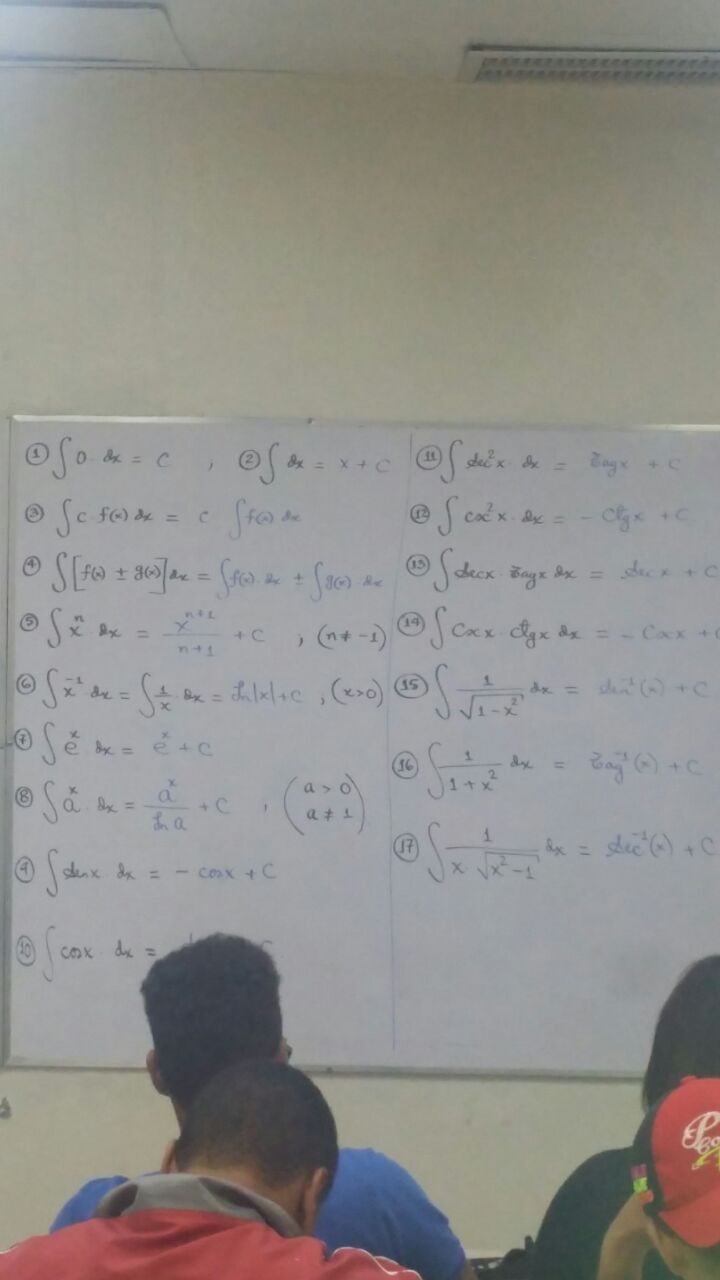 ① ∫ 0 · dx = C , ② ∫ dx = x + C
③ ∫ c · f(x) dx = c ∫ f(x) dx
④ ∫ [f(x) ± g(x)] dx = ∫ f(x) · dx ± ∫ g(x) · dx
⑤ ∫ xⁿ · dx = xⁿ⁺¹/(n+1) + C , (n ≠ -1)
⑥ ∫ x⁻¹ dx = ∫ 1/x · dx = ln|x| + C , (x>0)
⑦ ∫ eˣ · dx = eˣ + C
⑧ ∫ aˣ · dx = aˣ/ln a + C , (a > 0 a ≠ 1)
⑨ ∫ sen x · dx = - cos x + C
⑩ ∫ cos x · dx =
⑪ ∫ sec² x · dx = Tag x + C
⑫ ∫ csc² x · dx = - Ctg x + C
⑬ ∫ sec x · Tag x dx = sec x + C
⑭ ∫ Csc x · Ctg x dx = - Csc x + C
⑮ ∫ 1/√(1-x²) dx = sen⁻¹(x) + C
⑯ ∫ 1/(1+x²) dx = Tag⁻¹(x) + C
⑰ ∫ 1/(x · √(x²-1)) dx = sec⁻¹(x) + C